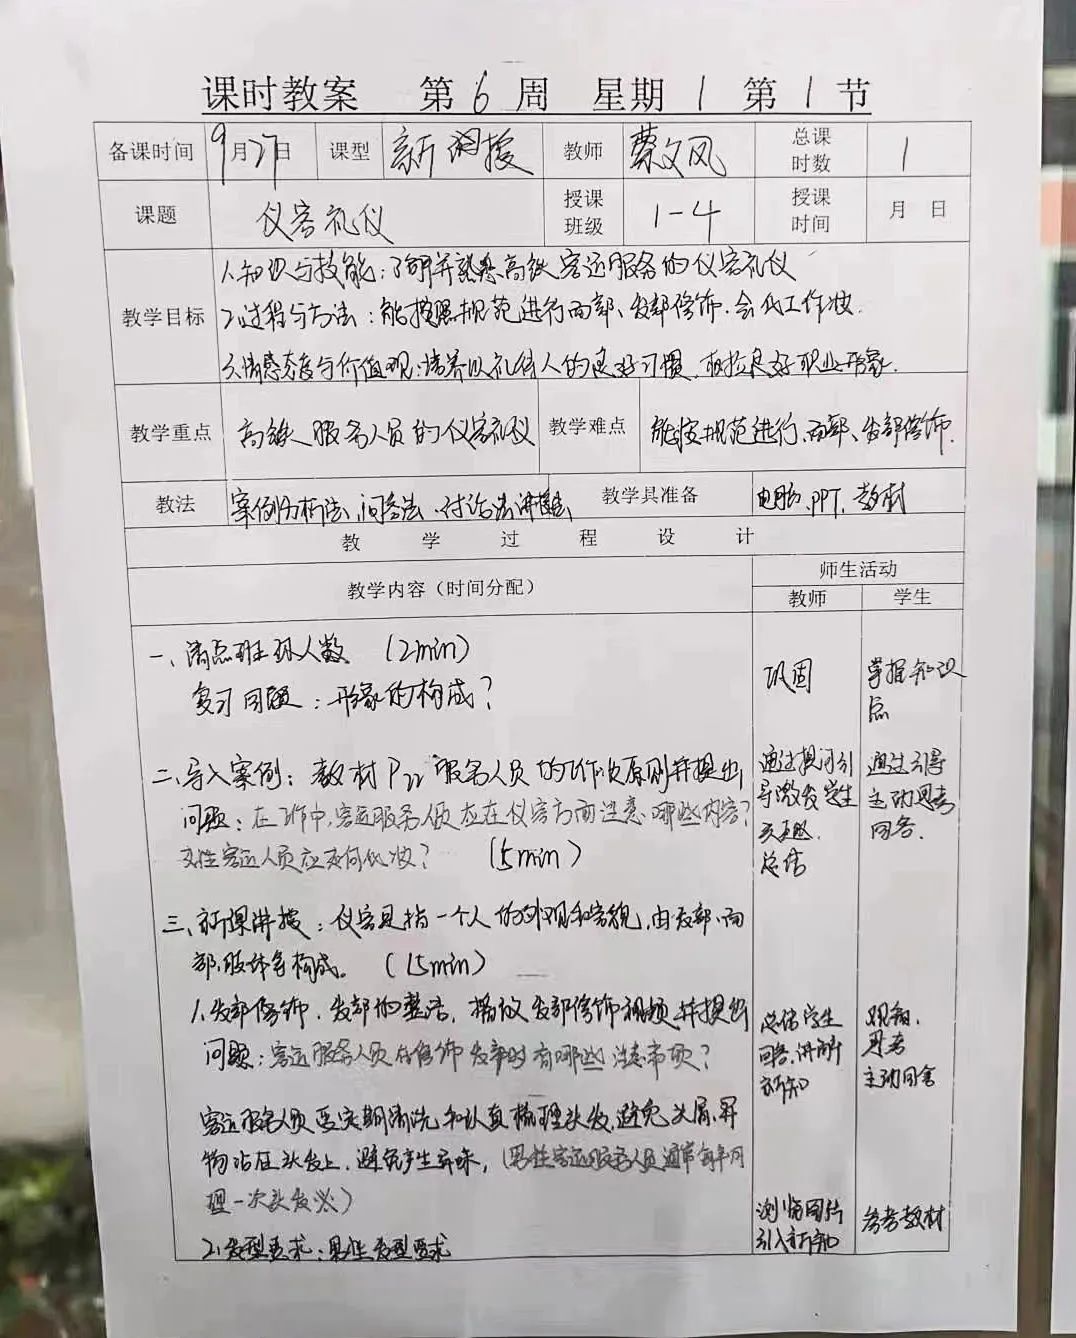 课时教案 第 6 周 星期 1 第 1 节
备课时间 9月27日 课型 新课授 教师 蔡文风 总课时数 1
课题 仪容礼仪 授课班级 1-4 授课时间 月 日
教学目标
1.知识与技能：了解并熟悉高铁客运服务的仪容礼仪
2.过程与方法：能按照规范进行面部、发部修饰.会化工作妆.
3.情感态度与价值观：培养以礼待人的良好习惯，树立良好职业形象.
教学重点 高铁服务人员的仪容礼仪 教学难点 能按规范进行面部、发部修饰.
教法 案例分析法、问答法、讨论法、讲授法 教学具准备 电脑、PPT、教材
教 学 过 程 设 计
教学内容（时间分配） 师生活动
教师 学生
一、清点班级人数 (2min)
复习问题：形象的构成？
巩固
掌握知识
点
二、导入案例：教材P22服务人员的工作妆原则并提出
问题：在工作中，客运服务人员应在仪容方面注意哪些内容？
女性客运人员应如何化妆？ (5min)
通过提问引
导激发学生
兴趣.
总结
通过引导
主动思考
回答.
三、新课讲授：仪容是指一个人的外观和容貌，由发部、面
部、肢体等构成。 (15min)
1.发部修饰.发部的整洁，播放发部修饰视频并提出
问题：客运服务人员在修饰发部时有哪些注意事项？
客运服务人员要定期清洗和认真梳理头发，避免头屑、异
物沾在头发上，避免产生异味，(男性客运服务人员通常每半月
理一次头发必)
2.发型要求：男性发型要求
总结学生
回答，讲解
新知
观看.
思考
主动回答
浏览图片
引入新知
参考教材